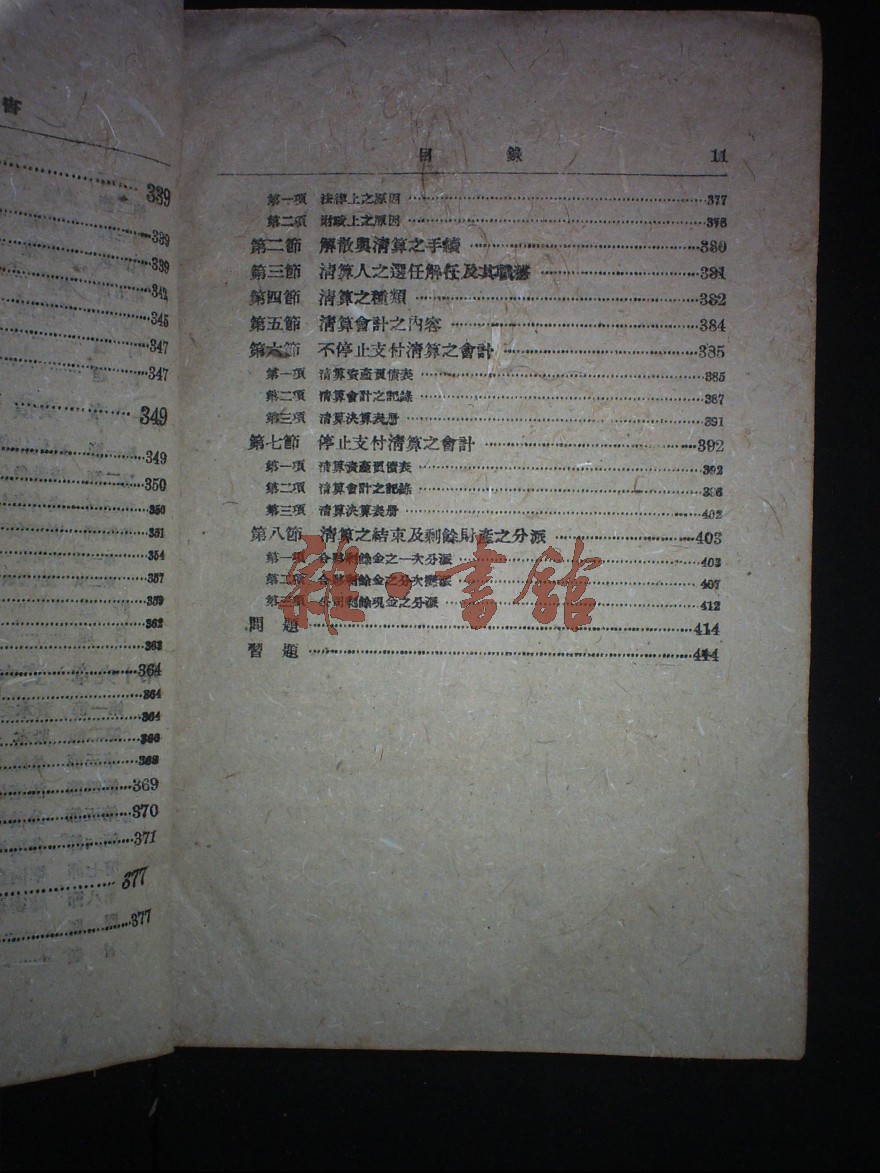 書
339
339
339
342
345
347
347
349
349
350
350
351
354
357
359
362
363
364
364
364
366
368
369
370
371
377
377
目 錄 11
第一項 法律上之原因 377
第二項 財政上之原因 378
第二節 解散與清算之手續 380
第三節 清算人之選任解任及其職務 381
第四節 清算之種類 382
第五節 清算會計之內容 384
第六節 不停止支付清算之會計 385
第一項 清算資產負債表 385
第二項 清算會計之記錄 387
第三項 清算決算表册 391
第七節 停止支付清算之會計 392
第一項 清算資產負債表 392
第二項 清算會計之記錄 396
第三項 清算決算表册 402
第八節 清算之結束及剩餘財產之分派 403
第一項 合夥剩餘金之一次分派 403
第二項 合夥剩餘金之分次攤派 407
第三項 公司剩餘現金之分派 412
問 題 414
習 題 414
雜·書館